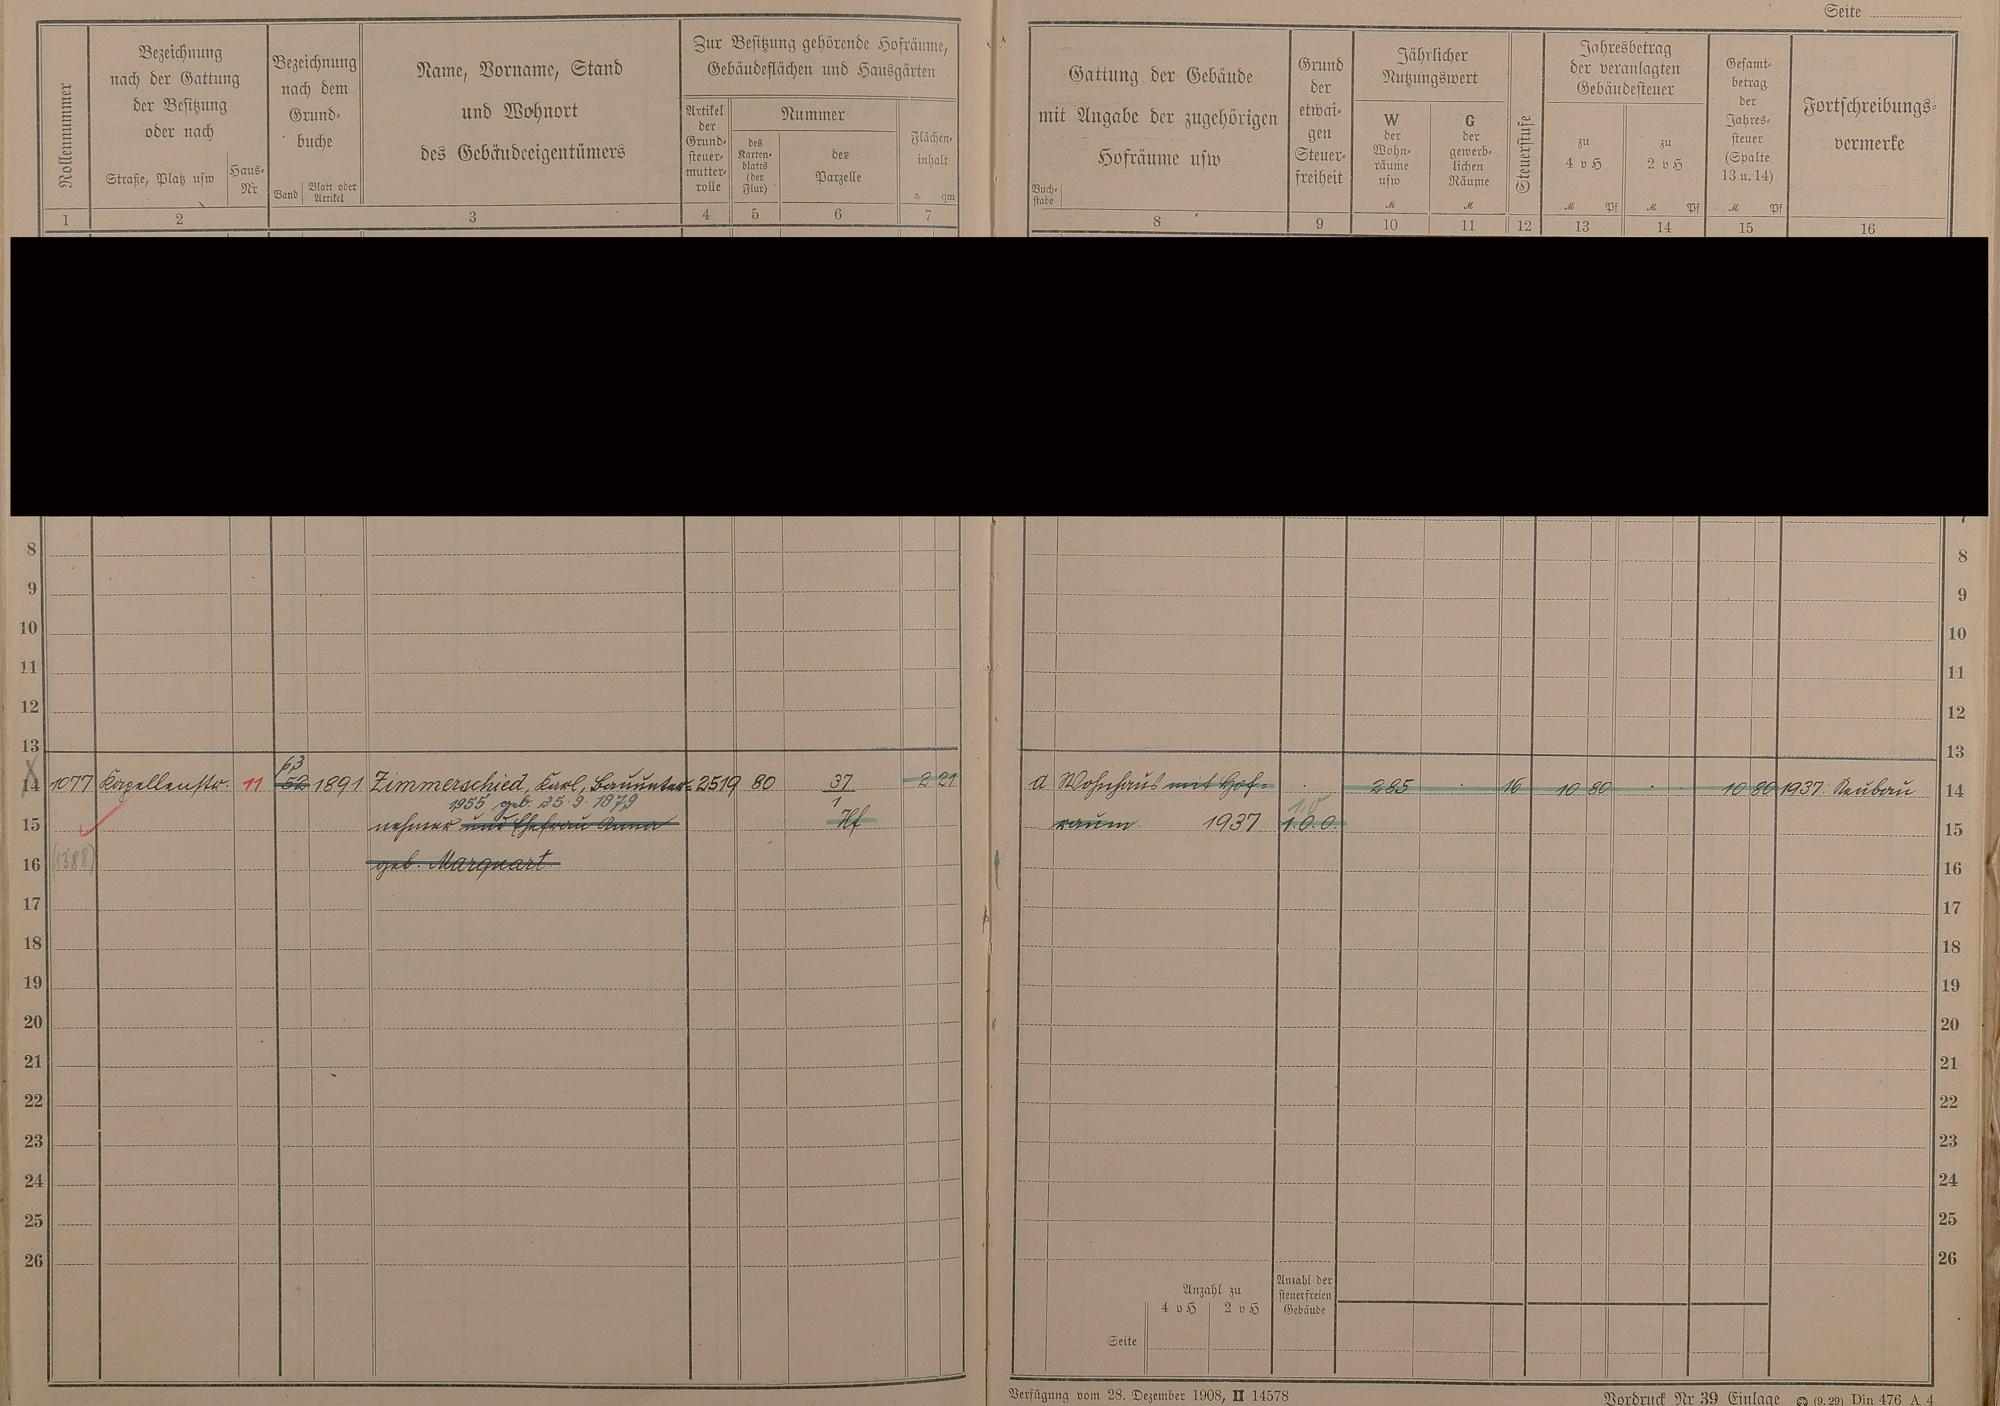 Seite
Rollennummer
Bezeichnung
nach der Gattung
der Besitzung
oder nach
Straße, Platz usw
Haus-
Nr
Bezeichnung
nach dem
Grund-
buche
Band
Blatt oder
Artikel
Name, Vorname, Stand
und Wohnort
des Gebäudeeigentümers
Zur Besitzung gehörende Hofräume,
Gebäudeflächen und Hausgärten
Artikel
der
Grund-
steuer-
mutter-
rolle
Nummer
des
Karten-
blatts
(der
Flur)
der
Parzelle
Flächen-
inhalt
a qm
1 2 3 4 5 6 7
Gattung der Gebäude
mit Angabe der zugehörigen
Hofräume usw
Buch-
stabe
Grund
der
etwai-
gen
Steuer-
freiheit
Jährlicher
Nutzungswert
W
der
Wohn-
räume
usw
M
G
der
gewerb-
lichen
Räume
M
Steuerstufe
Jahresbetrag
der veranlagten
Gebäudesteuer
zu
4 v H
M Pf
zu
2 v H
M Pf
Gesamt-
betrag
der
Jahres-
steuer
(Spalte
13 u. 14)
M Pf
Fortschreibungs-
vermerke
8 9 10 11 12 13 14 15 16
7
8 8
9 9
10 10
11 11
12 12
13 13
63
14 1077 Kapellenstr. 11 52 1891 Zimmerschied, Karl, Bauunter- 2519 80 37 2 21 a Wohnhaus mit Hof- 285 16 10 80 10 80 1937: Neubau 14
1955 geb. 25.9.1879 1
15 nehmer und Ehefrau Anna Hf raum. 1937 1.0.0. 15
16 (1388) geb. Marquart 16
17 17
18 18
19 19
20 20
21 21
22 22
23 23
24 24
25 25
26 26
Anzahl zu
4 v H 2 v H
Seite
Anzahl der
steuerfreien
Gebäude
Verfügung vom 28. Dezember 1908, II 14578
Vordruck Nr 39 Einlage (9.29) Din 476 A 4